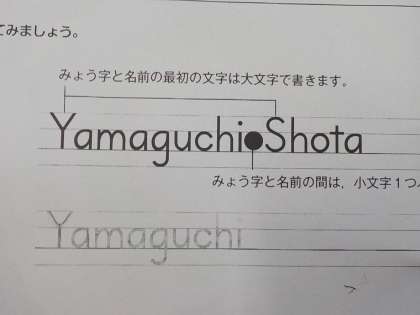 てみましょう。
みょう字と名前の最初の文字は大文字で書きます。
Yamaguchi●Shota
みょう字と名前の間は，小文字1つ
Yamaguchi